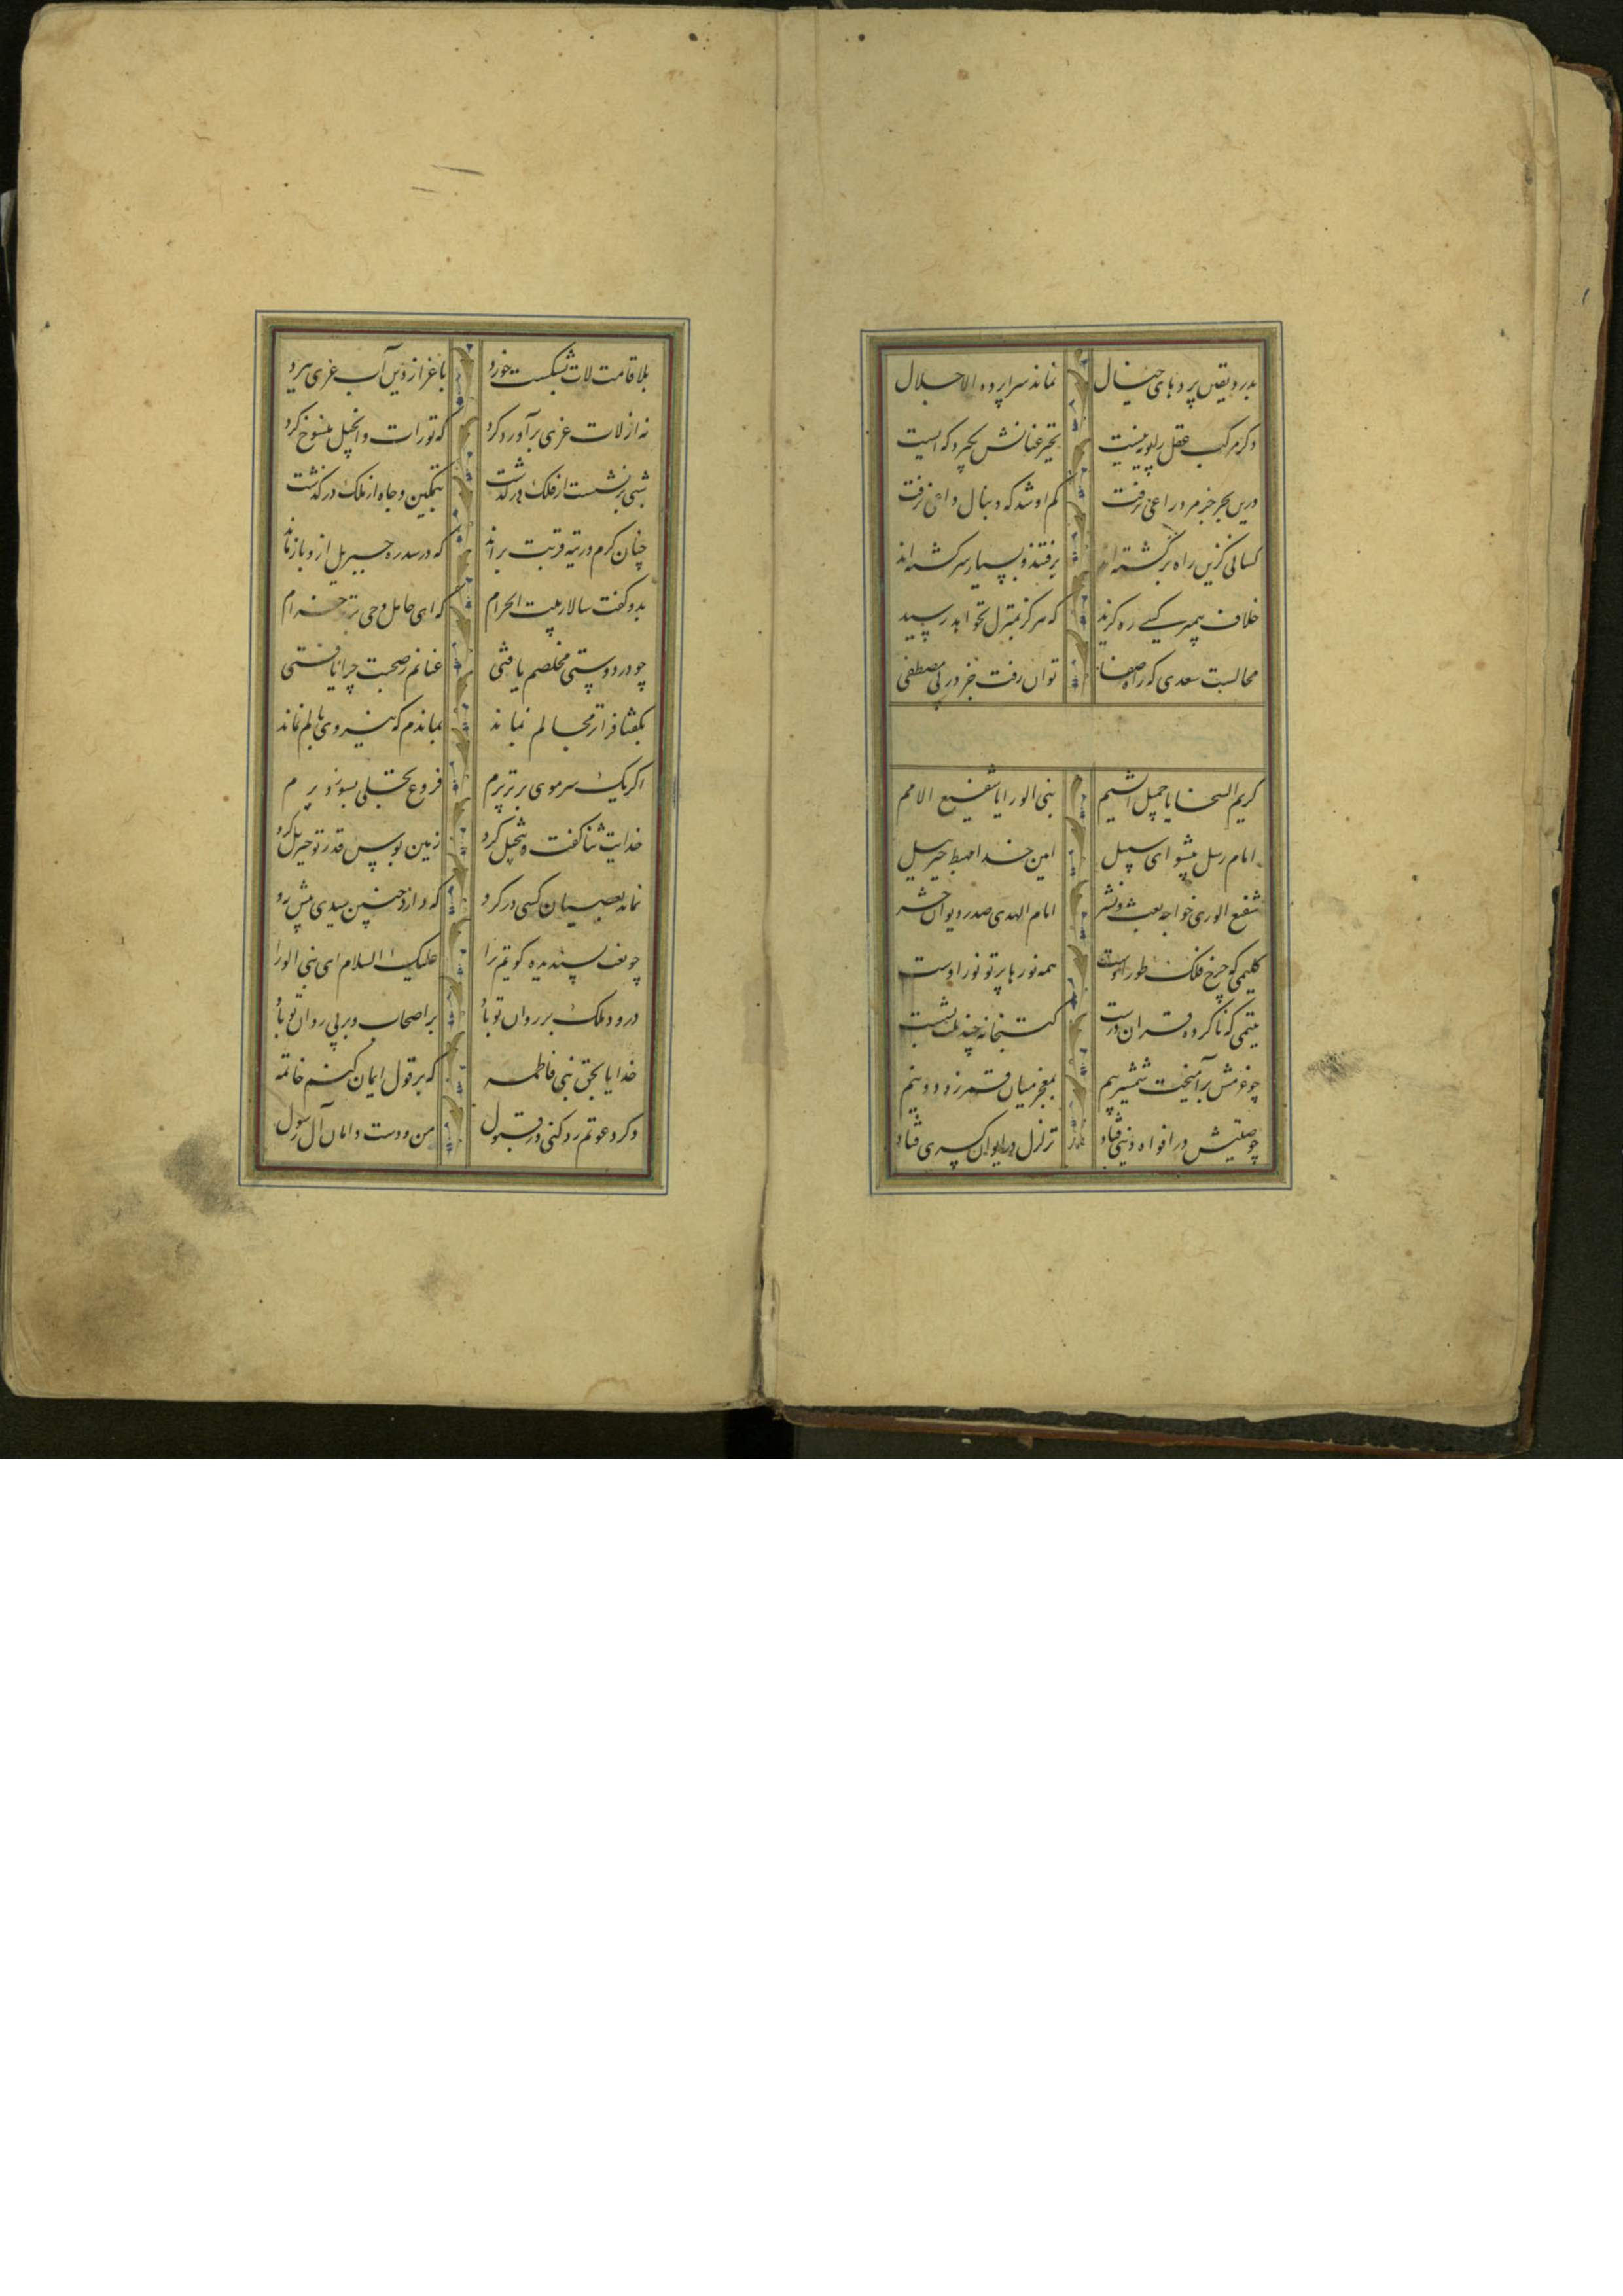 بدرد یقین پردهای خیال نماند سراپرده الا جلال
وکر مرکب عقل را پویه نیست تحیر عنانش بکیرد که ایست
درین بحر جز مرد راعی نرفت کم او شد که دنبال داعی نرفت
کسانی کزین راه برگشته‌اند برفتند و بسیار سرکشته‌اند
خلاف پیمبر کسی ره کزید که هرکز بمنزل نخواهد رسید
محالست سعدی که راه صفا توان رفت جز در پی مصطفی
کریم السجایا جمیل الشیم نبی الورایا شفیع الامم
امام رسل پیشوای سبیل امین خدا مهبط جبرییل
شفیع الوری خواجه بعث و نشر امام الهدی صدر دیوان حشر
کلیمی که چرخ فلک طور اوست همه نورها پرتو نور اوست
یتیمی که ناکرده قران درست کتبخانه چند ملت بشست
چو عزمش برآمیخت شمشیر بیم بمعجز میان قمر زد دو نیم
چو صیتش در افواه دنیی فتاد تزلزل در ایوان کسری فتاد
بلا قامت لات بشکست خورد باعزاز دین آب عزی ببرد
نه از لات عزی برآورد کرد که تورات و انجیل منسوخ کرد
شبی برنشست از فلک درکذشت بتمکین و جاه از ملک درکذشت
چنان کرم در تیه قربت براند که در سدره جبریل ازو باز ماند
بدو کفت سالار بیت الحرام که ای حامل وحی برتر خرام
چو در دوستی مخلصم یافتی عنانم ز صحبت چرا تافتی
بکفتا فراتر مجالم نماند بماندم که نیروی بالم نماند
اکر یک سر موی برتر پرم فروغ تجلی بسوزد پرم
خدایت ثنا کفت و تبجیل کرد زمین بوس قدر تو جبریل کرد
نماند بعصیان کسی در کرو که دارد چنین سیدی پیش رو
چو نعت پسندیده کویم ترا علیک السلام ای نبی الورا
درود ملک بر روان تو باد بر اصحاب و بر پی روان تو باد
خدایا بحق بنی فاطمه که بر قول ایمان کنم خاتمه
وکر دعوتم رد کنی در قبول من و دست و امان آل رسول